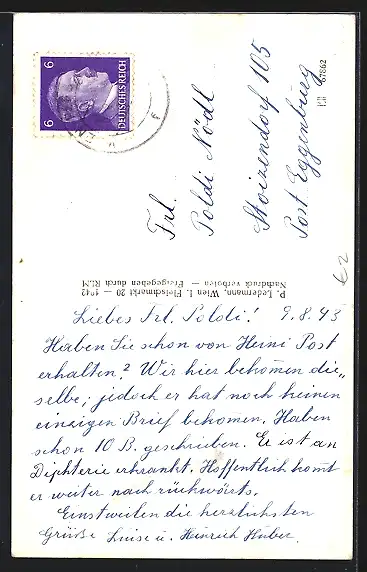 6 6
DEUTSCHES REICH
Frl.
Poldi Nödl
Stoizendorf 105
Post. Eggenburg
67862
P. Ledermann, Wien I. Fleischmarkt 20 — 1942
Nachdruck verboten — Freigegeben durch RLM
€2
Liebes Frl. Poldi! 9.8.43
Haben Sie schon von Heini Post
erhalten? Wir hier bekommen die„
selbe; jedoch er hat noch keinen
einzigen Brief bekomen. Haben
schon 10 B. geschrieben. Er ist an
Diphterie erkrankt. Hoffentlich komt
er weiter nach rückwörts.
Einstweilen die herzlichsten
Grüße Luise u. Heinrich Huber.